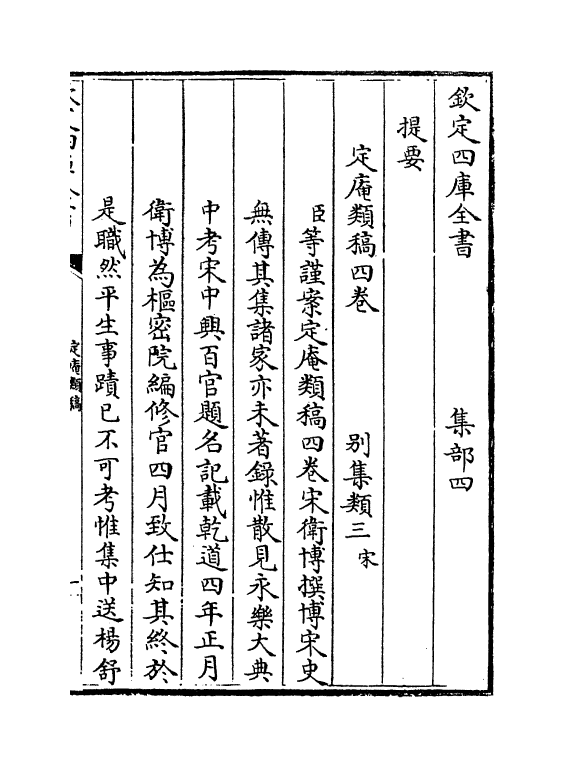 欽定四庫全書　　　　集部四
提要
定庵類稿四卷　　　　別集類三 宋
臣等謹案定庵類稿四卷宋衛博撰博宋史
無傳其集諸家亦未著錄惟散見永樂大典
中考宋中興百官題名記載乾道四年正月
衛博為樞密院編修官四月致仕知其終於
是職然平生事蹟已不可考惟集中送楊舒
定庵類稿